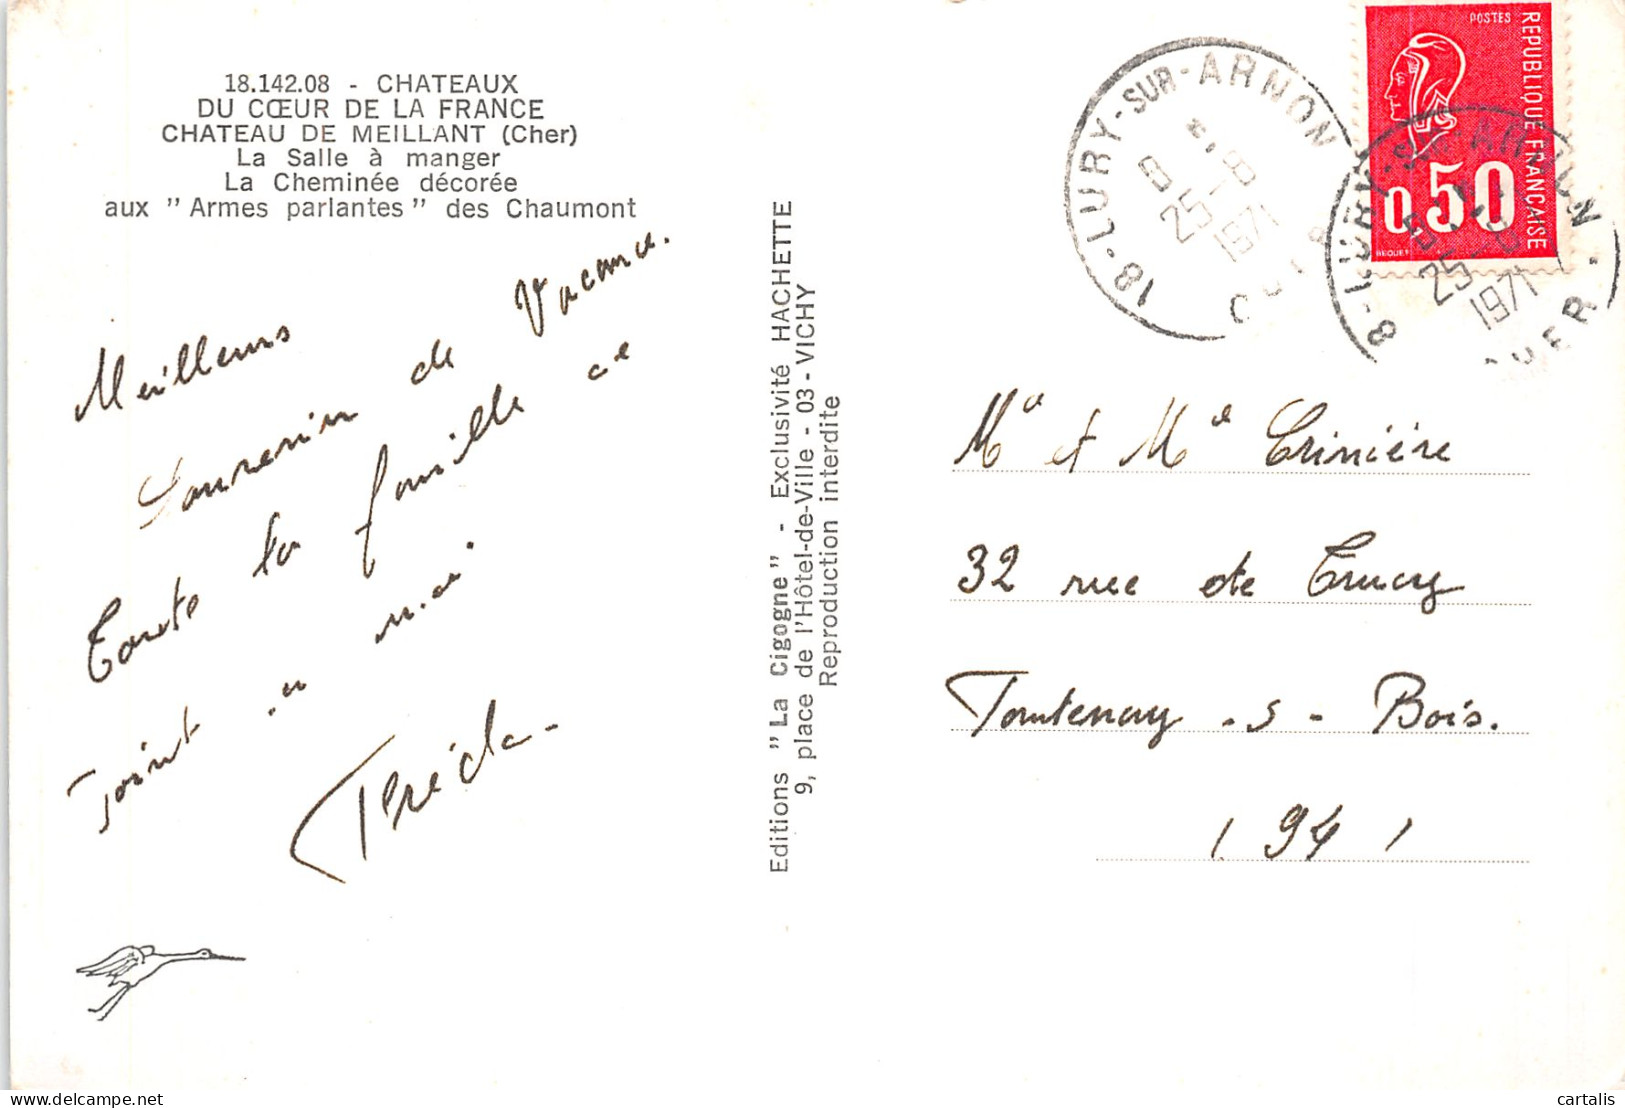 18.142.08 - CHATEAUX
DU CŒUR DE LA FRANCE
CHATEAU DE MEILLANT (Cher)
La Salle à manger
La Cheminée décorée
aux "Armes parlantes" des Chaumont
Meilleurs
Souvenir de Vacance.
Toute la famille ce
joint a moi.
Editions "La Cigogne" - Exclusivité HACHETTE
9, place de l'Hôtel-de-Ville - 03 - VICHY
Reproduction interdite
18-LURY-SUR-ARNON
25-8
1971
CHER
POSTES
REPUBLIQUE FRANÇAISE
0,50
BEQUET
18-LURY-SUR-ARNON
25-8
1971
CHER
Mr et Me Crinière
32 rue de
Fontenay - s - Bois.
( 94 )
cartalis